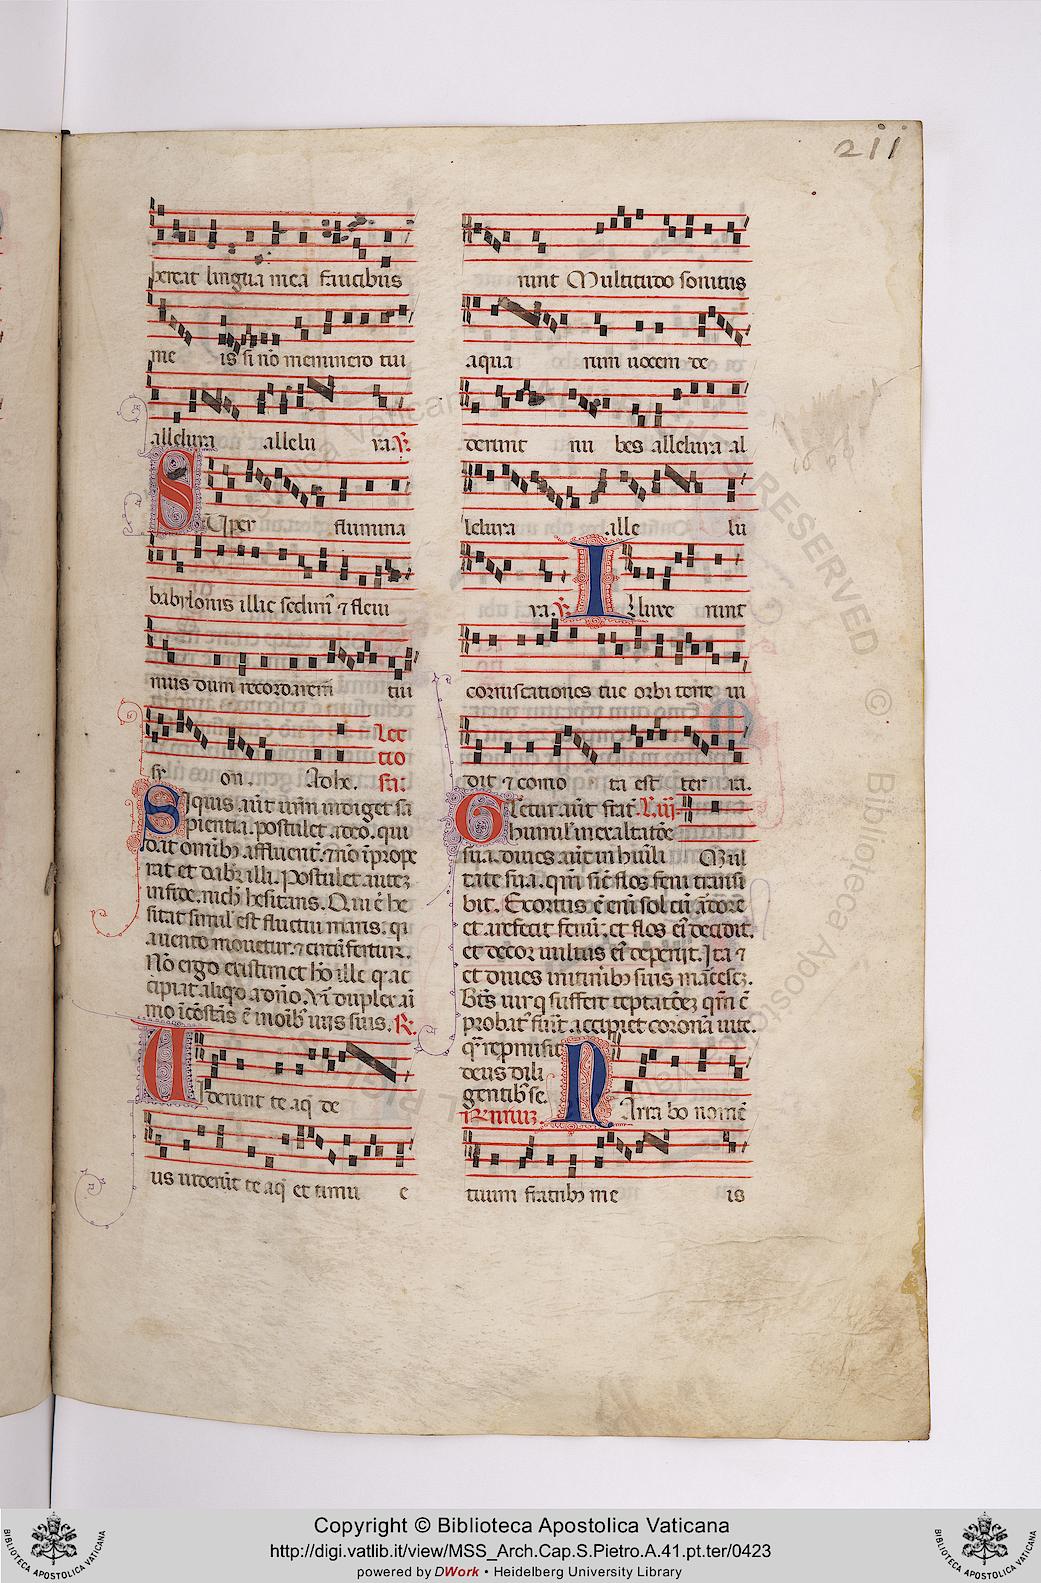 211
hereat lingua mea faucibus
me is si nō meminero tui
alleluia allelu ia. V̄.
SUper flumina
babylonis illic sedim̄ ⁊ flevi
mus dum recordarem̄ tui
sy on. Adhe. Lec
tio
sa.
Siquis aūt urm̄ indiget sa
pientia. postulet adeo. qui
dat omībȝ affluent̄. ⁊ nō īprope
rat et dabit̄ illi. Postulet autez
infide. nich̄ hesitans. Qui ē he
sitat simil̄ est fluctui maris: q̄
avento movetur. ⁊ circūfertur.
Nō ergo existimet hō ille q̄ ac
cipiat aliqd̄ adn̄o. Vir̄ duplex aī
mo īcōstās ē inoīb̄ viis suis. R̄.
VIderunt te aq̄ de
us viderūt te aq̄ et timu e
runt Multitudo sonitus
aqua rum vocem de
derunt nu bes alleluia al
leluia alle lu
ia. V̄. Iluxe runt
coruscationes tue orbi terre vi
dit ⁊ como ta est ter ra.
Gletur aūt frat̄. L. iij.
humil̄ inexaltatōe
sua. dives aūt in hūili Mul
tate sua. qm̄ sic̄ flos feni transi
bit. Exortus ē enī sol cū ardore
et arefecit fenū. et flos ei̅ decidit.
et decor vultus ei̅ deperiit. Ita ⁊
et dives initinībȝ suis marcescȝ.
Bt̄s vir q̄ suffert teptatōez qm̄ ē
probat̄ fūit accipiet coronā vite.
q̄ repmisit
deus dili
gentibȝ se.
Narra bo nomē
tuum fratribȝ me is
Copyright © Biblioteca Apostolica Vaticana
http://digi.vatlib.it/view/MSS_Arch.Cap.S.Pietro.A.41.pt.ter/0423
powered by DWork • Heidelberg University Library